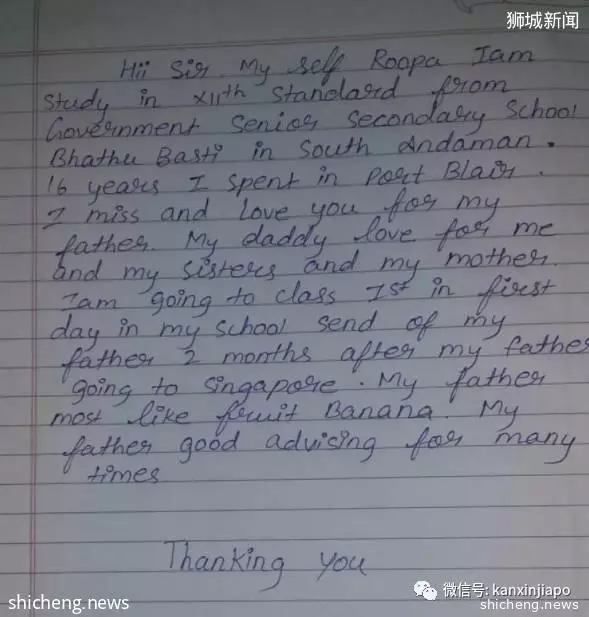 狮城新闻
Hii Sir. My self Roopa Iam
Study in XIIth Standard from
Government Senior Secondary School
Bhathu Basti in South Andaman.
16 years I spent in Port Blair.
I miss and love you for my
father. My daddy love for me
and my sisters and my mother.
Iam going to class Ist in first
day in my school send of my
father 2 months after my father
going to Singapore. My father
most like fruit Banana. My
father good advising for many
times
Thanking you
微信号: kanxinjiapo
shicheng.news
shicheng.news